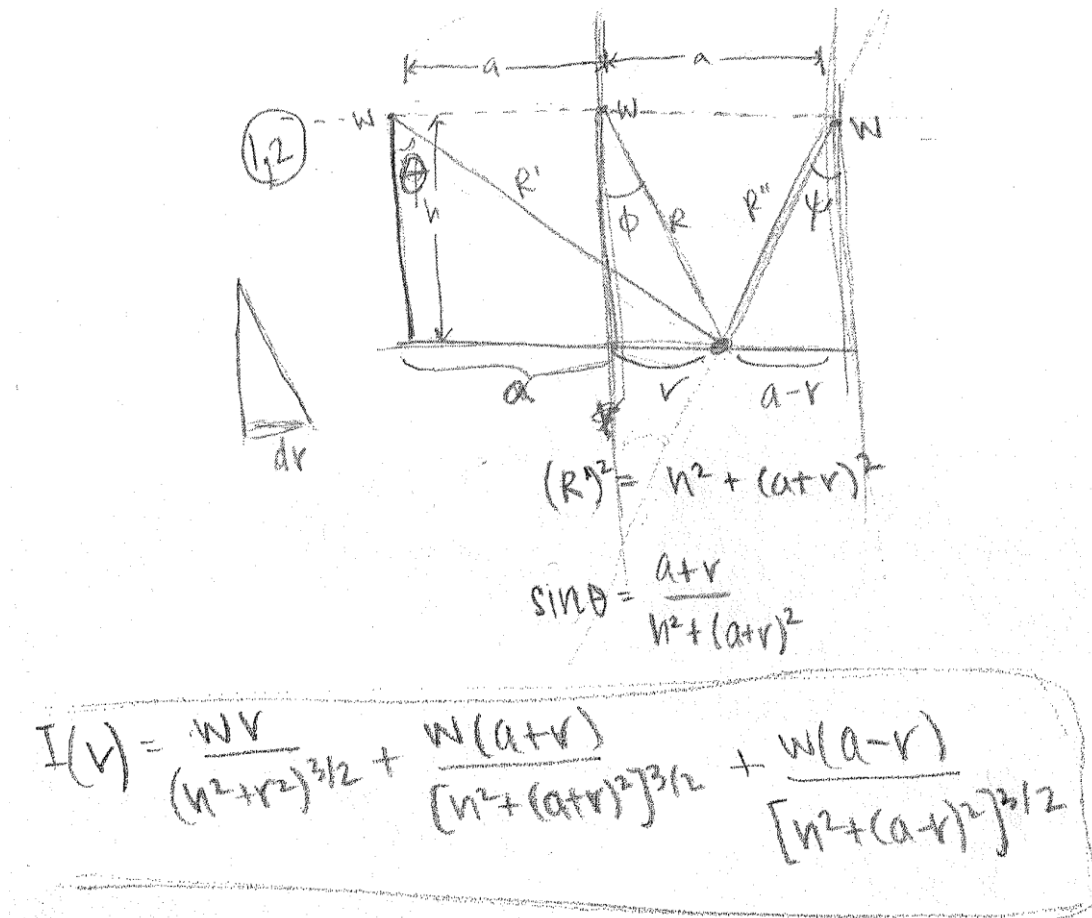 a a
1,2 W W W
θ h R' φ R R" ψ
a r a-r
dr
(R')² = h² + (a+r)²
sinθ = a+r / h² + (a+r)²
I(r) = Wr / (h²+r²)^3/2 + W(a+r) / [h²+(a+r)²]^3/2 + W(a-r) / [h²+(a-r)²]^3/2